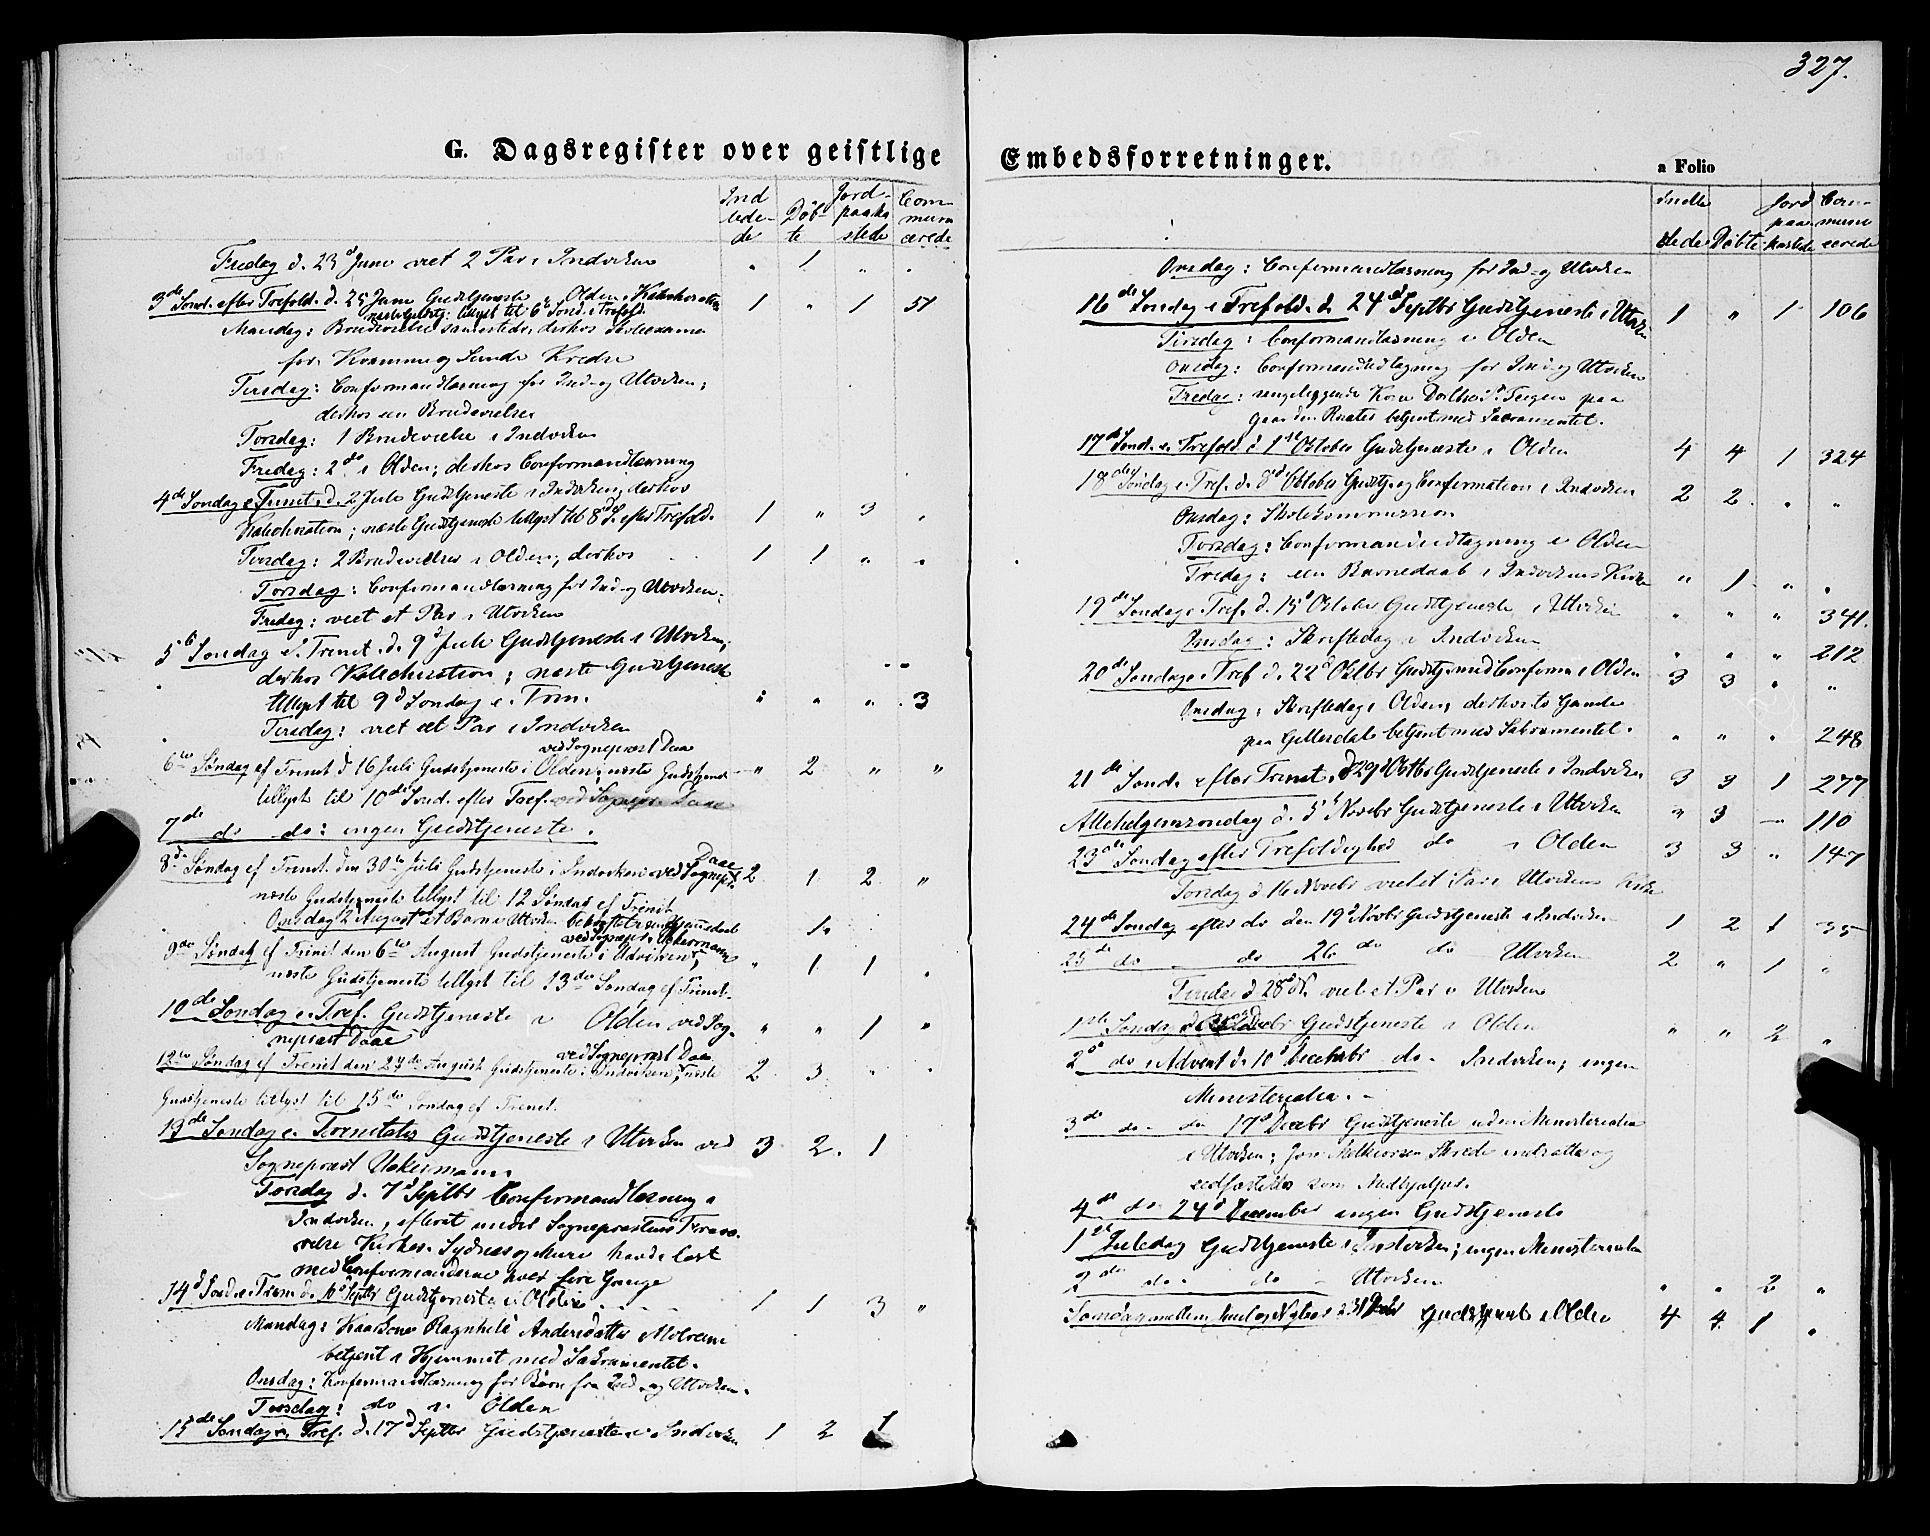 327.
G. Dagsregister over geistlige
Embedsforretninger.
a Folio
Ind
lede-
de
Döb-
te
Jord-
paaka
stede
Com-
muni
cerede
Fredag d. 23d Juni viet 2 Par i Indviken " 1 " "
3die Sönd. efter Trefold. d. 25 Juni Gudstjeneste i Olden, 1 " 1 51
næste Gudstj: tillyst til 6te Sönd. i Trefold.
Mandag: Brudevielse sammesteds, derhos Skoleexamen
for og Sunde Kredse
Tirsdag: Confirmandlæsning for Ind- og Utviken;
derhos een Brudevielse
Torsdag: 1 Brudevielse i Indviken
Fredag: 2 do i Olden; derhos Confirmandlæsning
4de Söndag e. Trinit. d. 2 Juli Gudstjeneste i Indviken, derhos
Katechisation; næste Gudstjeneste tillyst til 8d S. efter Trefold. 1 " 3 "
Tirsdag: 2 Brudevielser i Olden, derhos 1 1 " "
Torsdag: Confirmandlæsning for Ind- og Utviken;
Fredag: viet et Par i Utviken
5te Söndag e. Trinit. d. 9d Juli Gudstjeneste i Utviken;
derhos Katechisation; næste Gudstjeneste
tillyst til 9d Söndag e. Trin. " " " 3
Tirsdag: viet et Par i Indviken
ved Sogneprest Daae
6te Søndag ef Trinit d 16 Juli Gudstjeneste i Olden; næste Gudstjene- " 2 " "
tillyst til 10de Sönd. efter Tref. ved Sognepr. Daae
7de do do: ingen Gudstjeneste.
8de Søndag ef Trinit. den 30te Juli Gudstjeneste i Indviken ved Sognepr. Daae 2 1 2 "
næste Gudstjeneste tillyst til 12 Søndag ef Trinit.
Onsdag 2 August et Barn i Utviken 1.
ved Sognepr. Uckermann
9de Søndag ef Trinit den 6te August Gudstjeneste i Utviken, " 1 1 "
næste Gudstjeneste tillyst til 13de Søndag ef Trinit.
10de Söndag e. Tref. Gudstjeneste i Olden ved Sog- " " 1 "
neprest Daae
ved Sogneprest Daae
12te Søndag ef Trinit den 27de August Gudstjeneste i Indviken, næste 2 3 " "
Gudstjeneste tillyst til 15de Søndag ef Trinit.
13de Söndag e. Trinitatis Gudstjeneste i Utviken ved 3 2. 1
Sogneprest Uckermann
Torsdag d. 7d Septbr Confirmandlæsning i
Indviken, efterat under Sogneprestens Fravæ-
relse Kirkes. Sydnes og Mure havde læst
med Confirmanderne hver fire Gange
14d Sönd. e. Trin. d. 10d Septbr Gudstjeneste i Olden 1 1 3 "
Mandag: Ragnhild Andersdatter
betjent i Hjemmet med Sakramentet.
Onsdag: Konfirmandlæsning for Börn fra Ind- og Utviken.
Tirsdag: do i Olden
15de Söndag e. Tref. d. 17d Septbr Gudstjeneste i Indviken 1 2 1
Indle
dede
Döbte
Jord
paa
kastede
Com-
muni
cerede
Onsdag: Confirmandlæsning for Ind- og Utviken
16de Söndag e Trefold. d. 24d Septbr Gudstjeneste i Utviken 1 " 1 106
Tirsdag: Confirmandlæsning i Olden
Onsdag: Confirmandlæsning for Ind og Utviken
Fredag: sengeliggende Kone paa
Gaarden betjent med Sakramentet.
17de Sönd. e. Trefold d 1ste Oktober Gudstjeneste i Olden 4 4 1 324
18de Söndag e. Tref. d. 8d Oktober Gudstj. og Confirmation i Indviken 2 2 " "
Onsdag: Skolekommission
Torsdag: Confirmandudtagning i Olden
Fredag: een Barnedaab i Indvikens Kirke " 1 " "
19de Söndag e. Tref. d. 15d Oktober Gudstjeneste i Utviken " " " 341.
Onsdag: Skriftedag i Indviken " " " 212
20de Söndag e. Tref d. 22d Oktbr Gudstj. med Confirm. i Olden 3 3 " "
Onsdag: Skriftedag i Olden, derhos to Gamle
paa betjent med Sakramentet. " " " 248
21de Sönd. efter Trinit. d 29d Octbr Gudstjeneste i Indviken 3 3 1 277
Allehelgensöndag d. 5te Novbr Gudstjeneste i Utviken " 3 — 110
23de Söndag efter Trefoldighed do i Olden 3 3 " 147
Torsdag d 16 Novbr viet et Par i Utvikens Kirke
24de Söndag efter do den 19d Novbr Gudstjeneste i Indviken 1 2 1 35
25de do do 26de do Utviken 2 " 1 "
Tirsdag d 28d viet et Par i Utviken
1ste Söndag Gudstjeneste i Olden " " 2 "
2d do i Advent d. 10d Decbr do- Indviken; ingen
Ministerialia. -
3de do- do 17d Decbr Gudstjeneste uden Ministerialia
i Utviken; Skrede indsatte og
som Medhjælper.
4de do 24d December ingen Gudstjeneste
1ste Juledag Gudstjeneste i Indviken; ingen Ministerialia
2den do- do - Utviken " " 2 "
Söndag mellem Juul og Nytaar d 31 Decbr Gudstjeneste i Olden 4 4 1 "